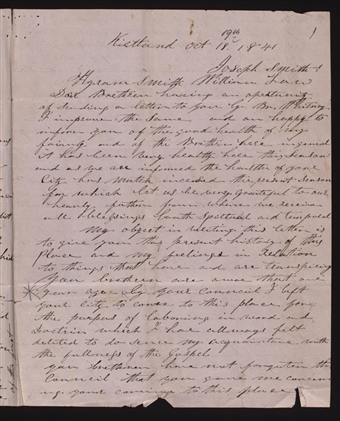 1
19th
Kirtland Oct 18, 1841
Joseph Smith &
Hyram Smith William Law
Dear Brethren having an opertunity
of sending a letter to you by Br. Whitney
I improve the same and am happy to
inform you of the good health of my
family and of the Brethren here in general
it has been very healthy here this season
and as we are informed the health of your
City has much the present season
for which let us be very grateful to our
heavenly father from whom we receive
all blessings both Spiritual and temporal
My object in writing this letter is
to give you the present history of this
Place and my feelings in relation
to things that have and are transpiring
Your brethren are aware that
your Council I left
your City to come to this place for
the purpos of labouring in word and
Doctrin which I have allways felt
delited to do since my acquaintance with
the fullness of the Gospel
you brethren have not forgotten the
Council that you gave me concern
ing your coming to this place